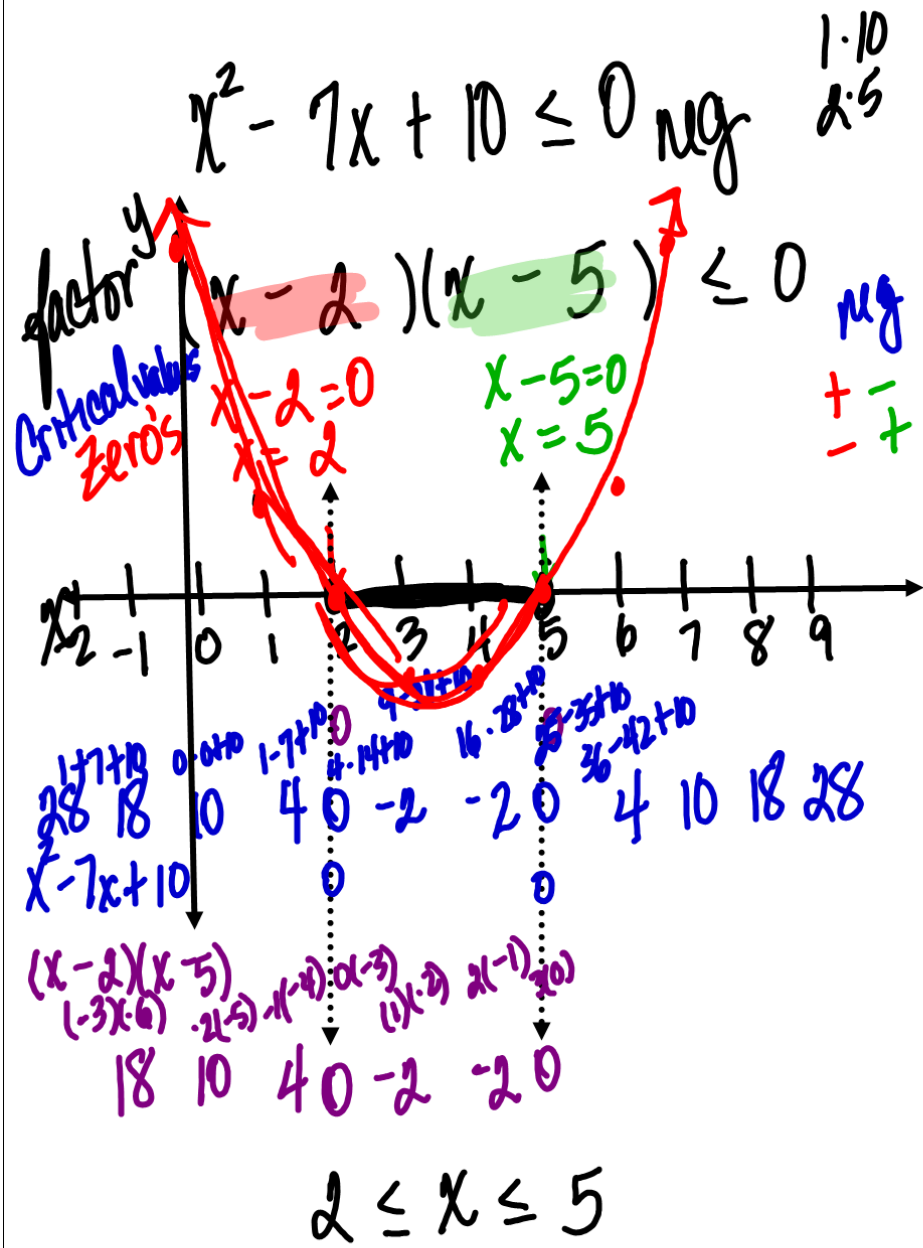 1·10
x² - 7x + 10 ≤ 0 neg
2·5
y
factor (x - 2)(x - 5) ≤ 0
neg
Critical values
x - 2 = 0
x - 5 = 0
+ -
Zero's
x = 2
x = 5
- +
x
-2 -1 0 1 2 3 4 5 6 7 8 9
0 0
1+7+10 0-0+10 1-7+10 4-14+10 9-21+10 16-28+10 25-35+10 36-42+10
28 18 10 4 0 -2 -2 0 4 10 18 28
x² - 7x + 10 0 0
(x - 2)(x - 5)
(-3)(-6) -2(-5) -1(-4) 0(-3) (1)(-2) 2(-1) 3(0)
18 10 4 0 -2 -2 0
2 ≤ x ≤ 5